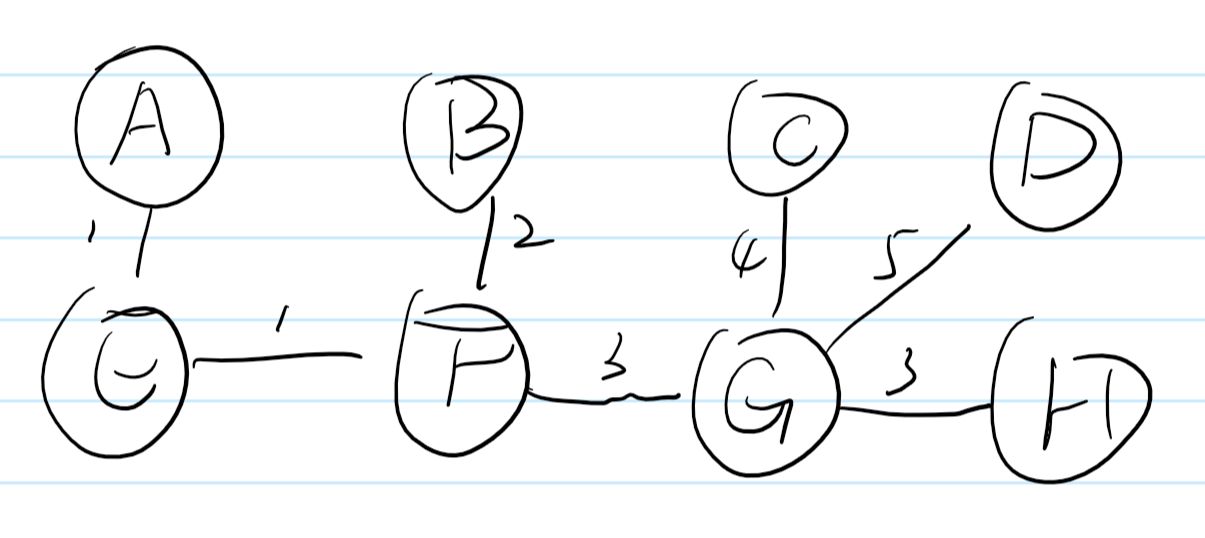 A B C D
1 2 4 5
E 1 F 3 G 3 H